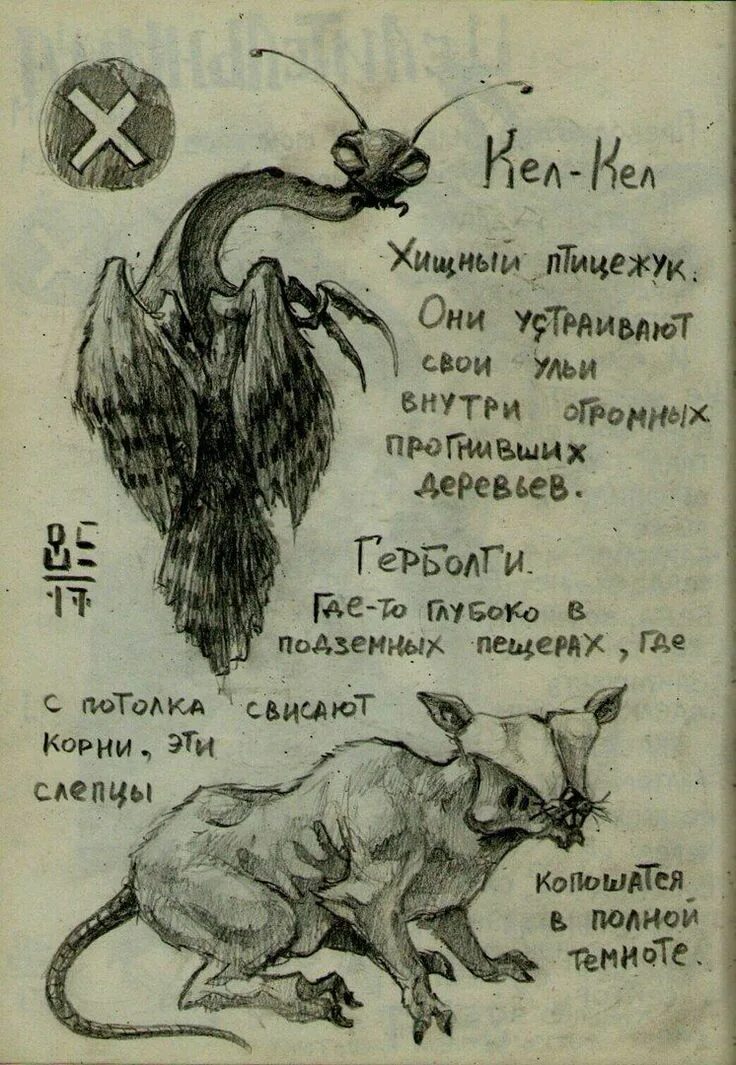 Кел-Кел
Хищный птицежук.
Они устраивают
свои ульи
внутри огромных
прогнивших
деревьев.
17
Герболги.
Где-то глубоко в
подземных пещерах, где
с потолка свисают
корни, эти
слепцы
копошатся
в полной
темноте.